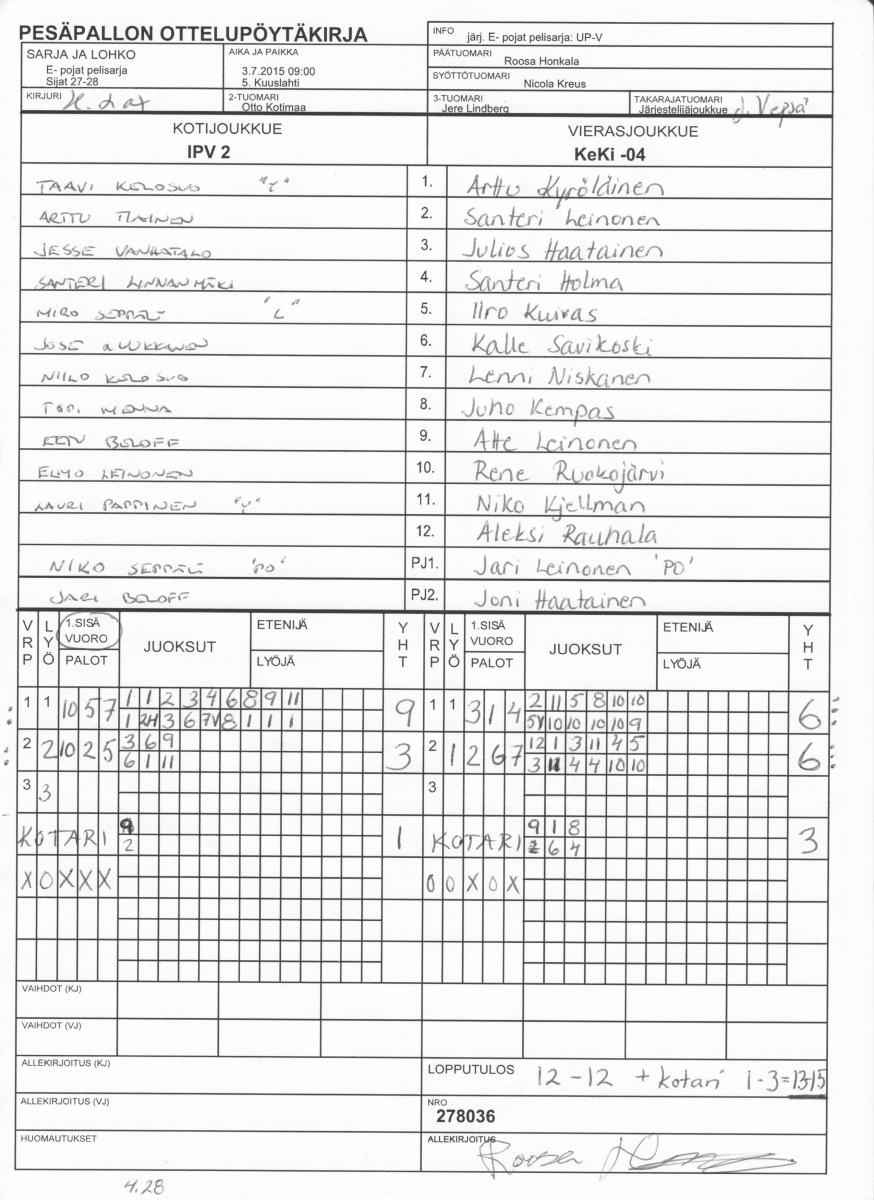 PESÄPALLON OTTELUPÖYTÄKIRJA
INFO järj. E- pojat pelisarja: UP-V
SARJA JA LOHKO
E- pojat pelisarja
Sijat 27-28
AIKA JA PAIKKA
3.7.2015 09:00
5. Kuuslahti
PÄÄTUOMARI
Roosa Honkala
SYÖTTÖTUOMARI
Nicola Kreus
KIRJURI
2-TUOMARI
Otto Kotimaa
3-TUOMARI
Jere Lindberg
TAKARAJATUOMARI
Järjestelijäjoukkue J. Vepsä
KOTIJOUKKUE
IPV 2
VIERASJOUKKUE
KeKi -04
TAAVI KOLOSUO "Y" 1. Arttu Kyröläinen
ARTTU TIAINEN 2. Santeri Leinonen
JESSE VANHATALO 3. Julius Haatainen
SANTERI LINNANMÄKI 4. Santeri Holma
MIRO SEPPÄLÄ "L" 5. Iiro Kuivas
6. Kalle Savikoski
NIILO KOLOSUO 7. Lenni Niskanen
8. Juho Kempas
EETU BELOFF 9. Atte Leinonen
ELMO LEINONEN 10. Rene Ruokojärvi
LAURI PAPPINEN "V" 11. Niko Kjellman
12. Aleksi Rauhala
NIKO SEPPÄLÄ 'PO' PJ1. Jari Leinonen 'PO'
JARI BELOFF PJ2. Joni Haatainen
VRP LYÖ 1.SISÄ VUORO PALOT JUOKSUT ETENIJÄ LYÖJÄ YHT VRP LYÖ 1.SISÄ VUORO PALOT JUOKSUT ETENIJÄ LYÖJÄ YHT
1 1 10 5 7 1 1 2 3 4 6 8 9 11 9 1 1 3 1 4 2 11 5 8 10 10 6
1 2H 3 6 7V 8 1 1 1 5V 10 10 10 10 9
2 2 10 2 5 3 6 9 3 2 1 2 6 7 12 1 3 11 4 5 6
6 1 11 3 11 4 4 10 10
3 3 3
KOTARI 9 1 KOTARI 9 1 8 3
2 2 6 4
X O X X X O O X O X
VAIHDOT (KJ)
VAIHDOT (VJ)
ALLEKIRJOITUS (KJ)
LOPPUTULOS 12 - 12 + kotari 1 - 3 = 13-15
ALLEKIRJOITUS (VJ)
NRO
278036
HUOMAUTUKSET
ALLEKIRJOITUS
4.28